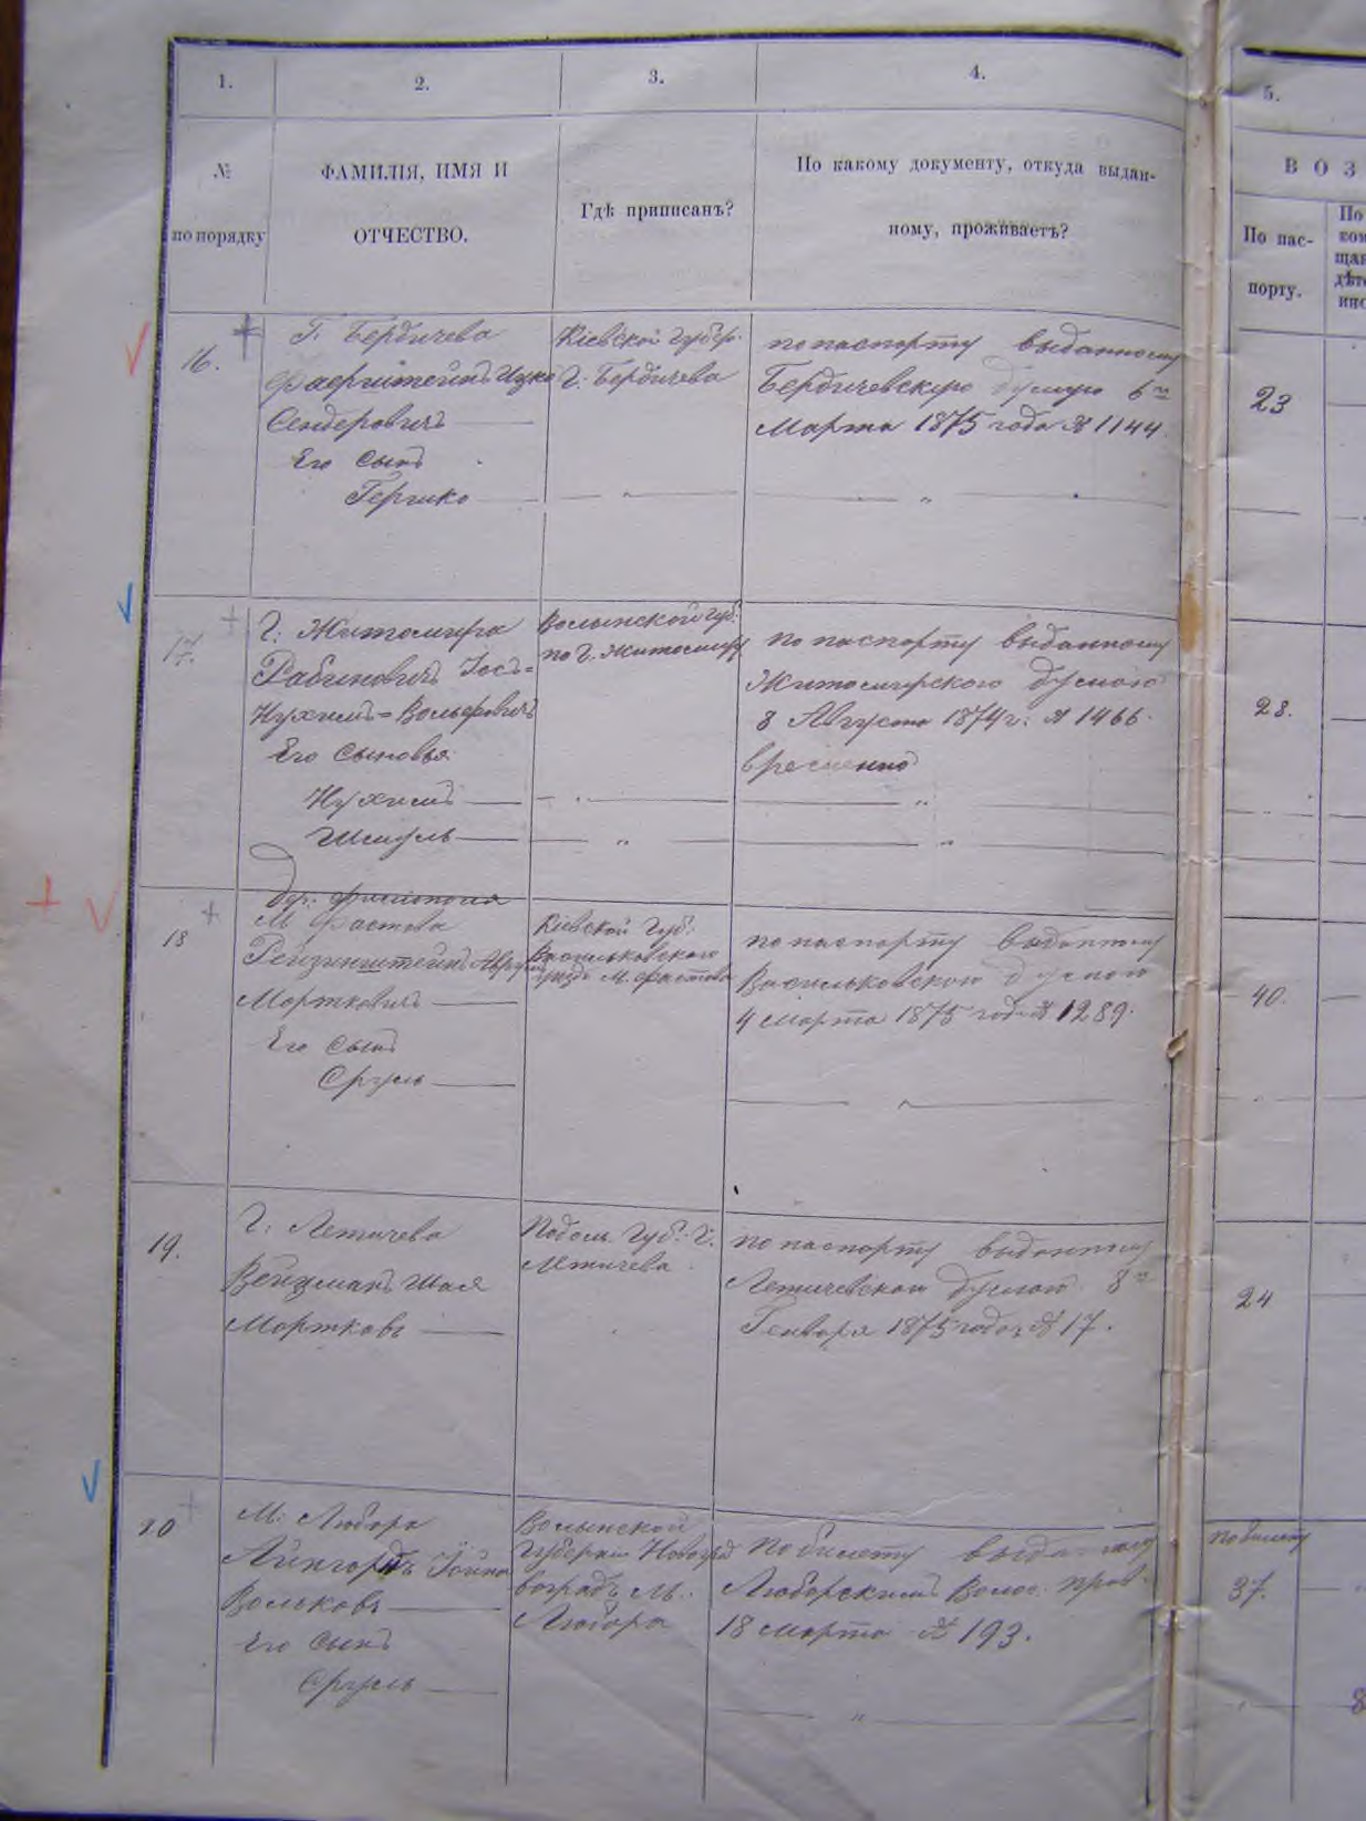 1.
2.
3.
4.
5.
№
по порядку
ФАМИЛІЯ, ИМЯ И
ОТЧЕСТВО.
Гдѣ приписанъ?
По какому документу, откуда выдан-
ному, проживаетъ?
ВОЗ
По пас-
порту.
По
ком
щан
дѣт
инс
16.
Г. Бердичева
Фаерштейнъ Ицко
Сендеровичъ
Его сынъ
Гершко
Кіевской Губер.
Г. Бердичева
по паспорту выданному
Бердичевскую думою 6го
Марта 1875 года № 1144.
23
17.
Г. Житомира
Рабиновичъ Іосъ=
Нухимъ=Вольфовичъ
Его сыновья
Нухимъ
Шмуль
Волынской Губ.
по Г. Житомиру
по паспорту выданному
Житомирскою думою
8 Августа 1874 г. № 1466.
временно
28.
18
М. Фастова
Рейзинштейнъ
Мортковичъ
Его сынъ
Сруль
Кіевской Губ.
Васильковского
М. Фастова
по паспорту выданному
Васильковской думою
4 Марта 1875 года № 1289.
40.
19.
Г. Летичева
Вейцманъ Шая
Мортковъ
Подол. Губ. Г.
Летичева
по паспорту выданному
Летичевской думою 8го
Генваря 1875 года № 17.
24
20
М. Любара
Айнгордъ Іойна
Вольковъ
Его сынъ
Сруль
Волынской
Губерніи Новогра
воградъ М.
Любара
По билету выданному
Люборскимъ Волос. прав.
18 Марта № 193.
По билету
37.
8